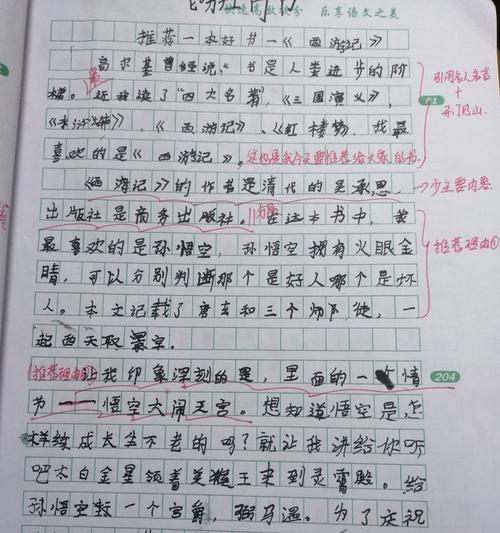 快速高效提分 乐享语文之美
推荐一本好书一《西游记》
高尔基曾经说,"书是人类进步的阶
梯。最近我读了"四大名著",《三国演义》,
《水浒传》,《西游记》、《红楼梦》,我最
喜欢的是《西游记》。这也是我今天要推荐给大家的书。
引用名人名言
+
开门见山。
《西游记》的作者是清代的吴承恩,
少主要内容
出版社是商务出版社。在这本书中,我
最喜欢的是孙悟空,孙悟空拥有火眼金
推荐理由①
睛,可以分别判断那个是好人哪个是坏
人。本文记载了唐玄和三个师徒,一
起西天取
推荐理由
让我印象深刻的是,里面的一个情
204
节——悟空大闹天宫。想知道悟空是怎
样续成长生不老的吗?就让我讲给你听
吧太白金星领着美猴王来到灵霄殿。给
孙悟空封一个官爵,弼马温。为了庆祝